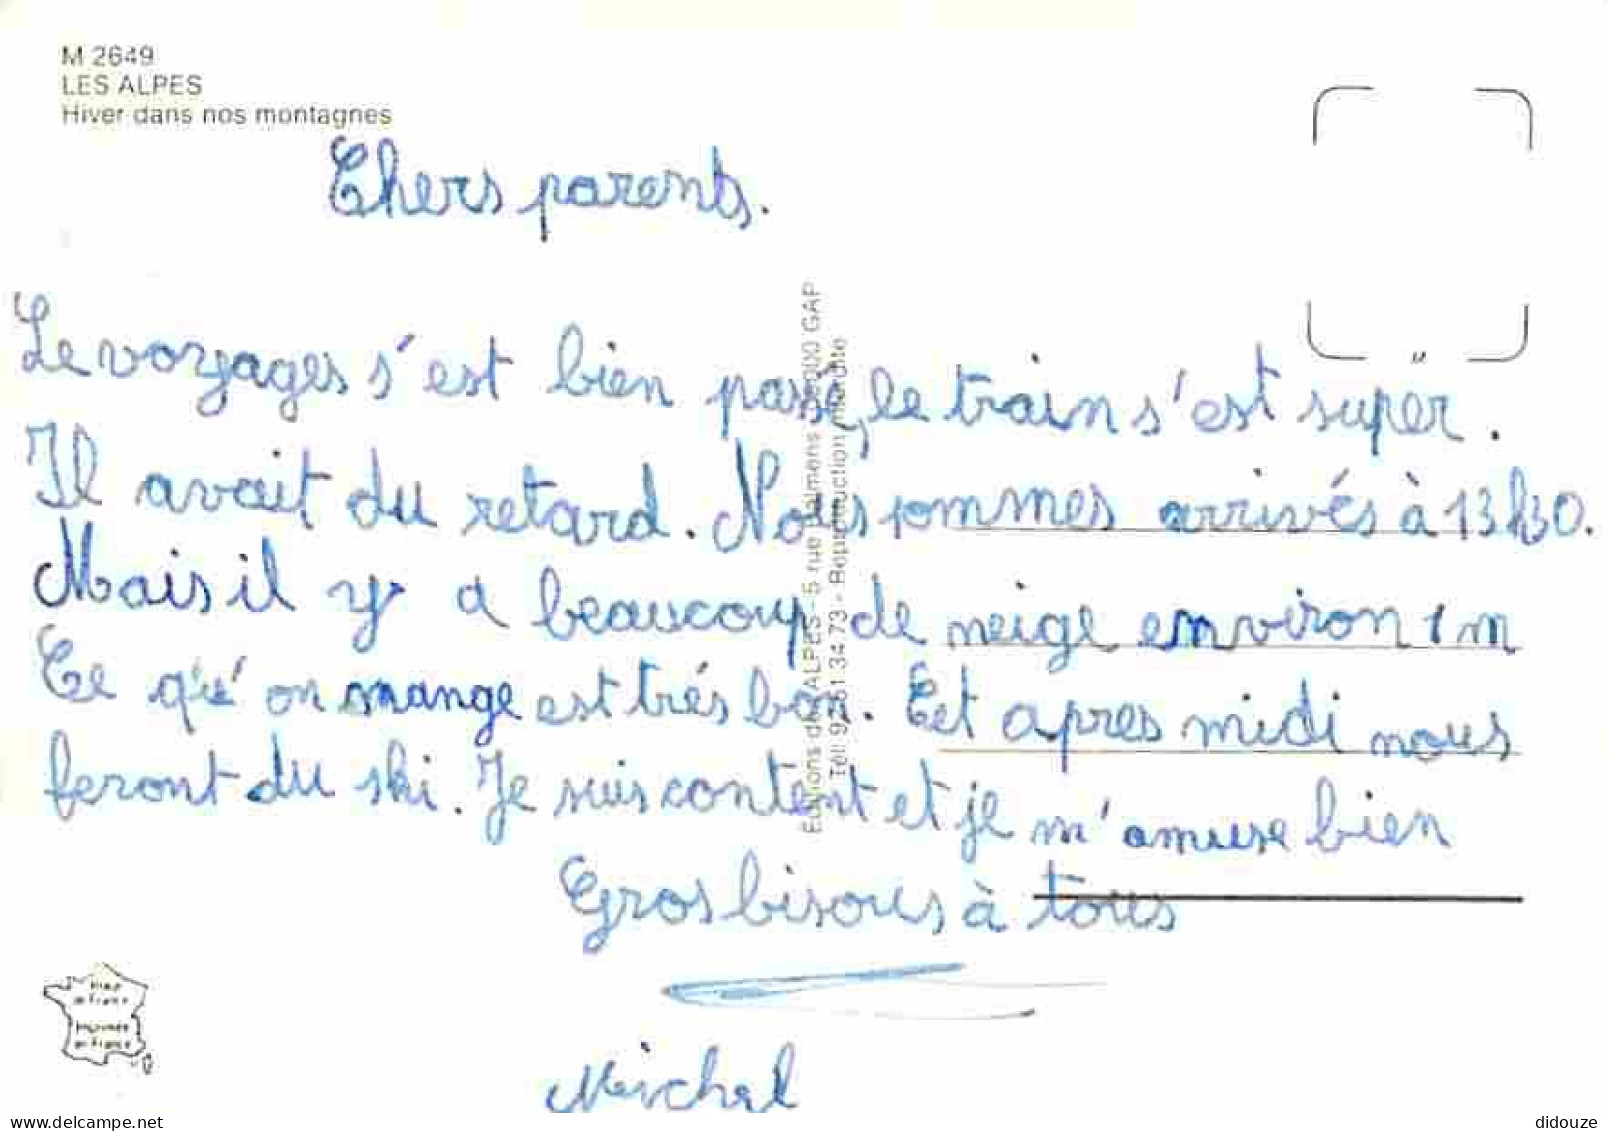 M 2649
LES ALPES
Hiver dans nos montagnes
Chers parents.
Le voyages s'est bien passé, le train s'est super.
Il avait du retard. Nous sommes arrivés à 13h30.
Mais il y a beaucoup de neige environ 1 m
Ce qu'on mange est trés bon. Cet apres midi nous
feront du ski. Je suis content et je m'amuse bien
Gros bisous à tous
Michel
Editions des ALPES - 5 rue GAP
Tél. 92 51 34 73 - Reproduction interdite
de France
Imprimée
en France
www.delcampe.net
didouze